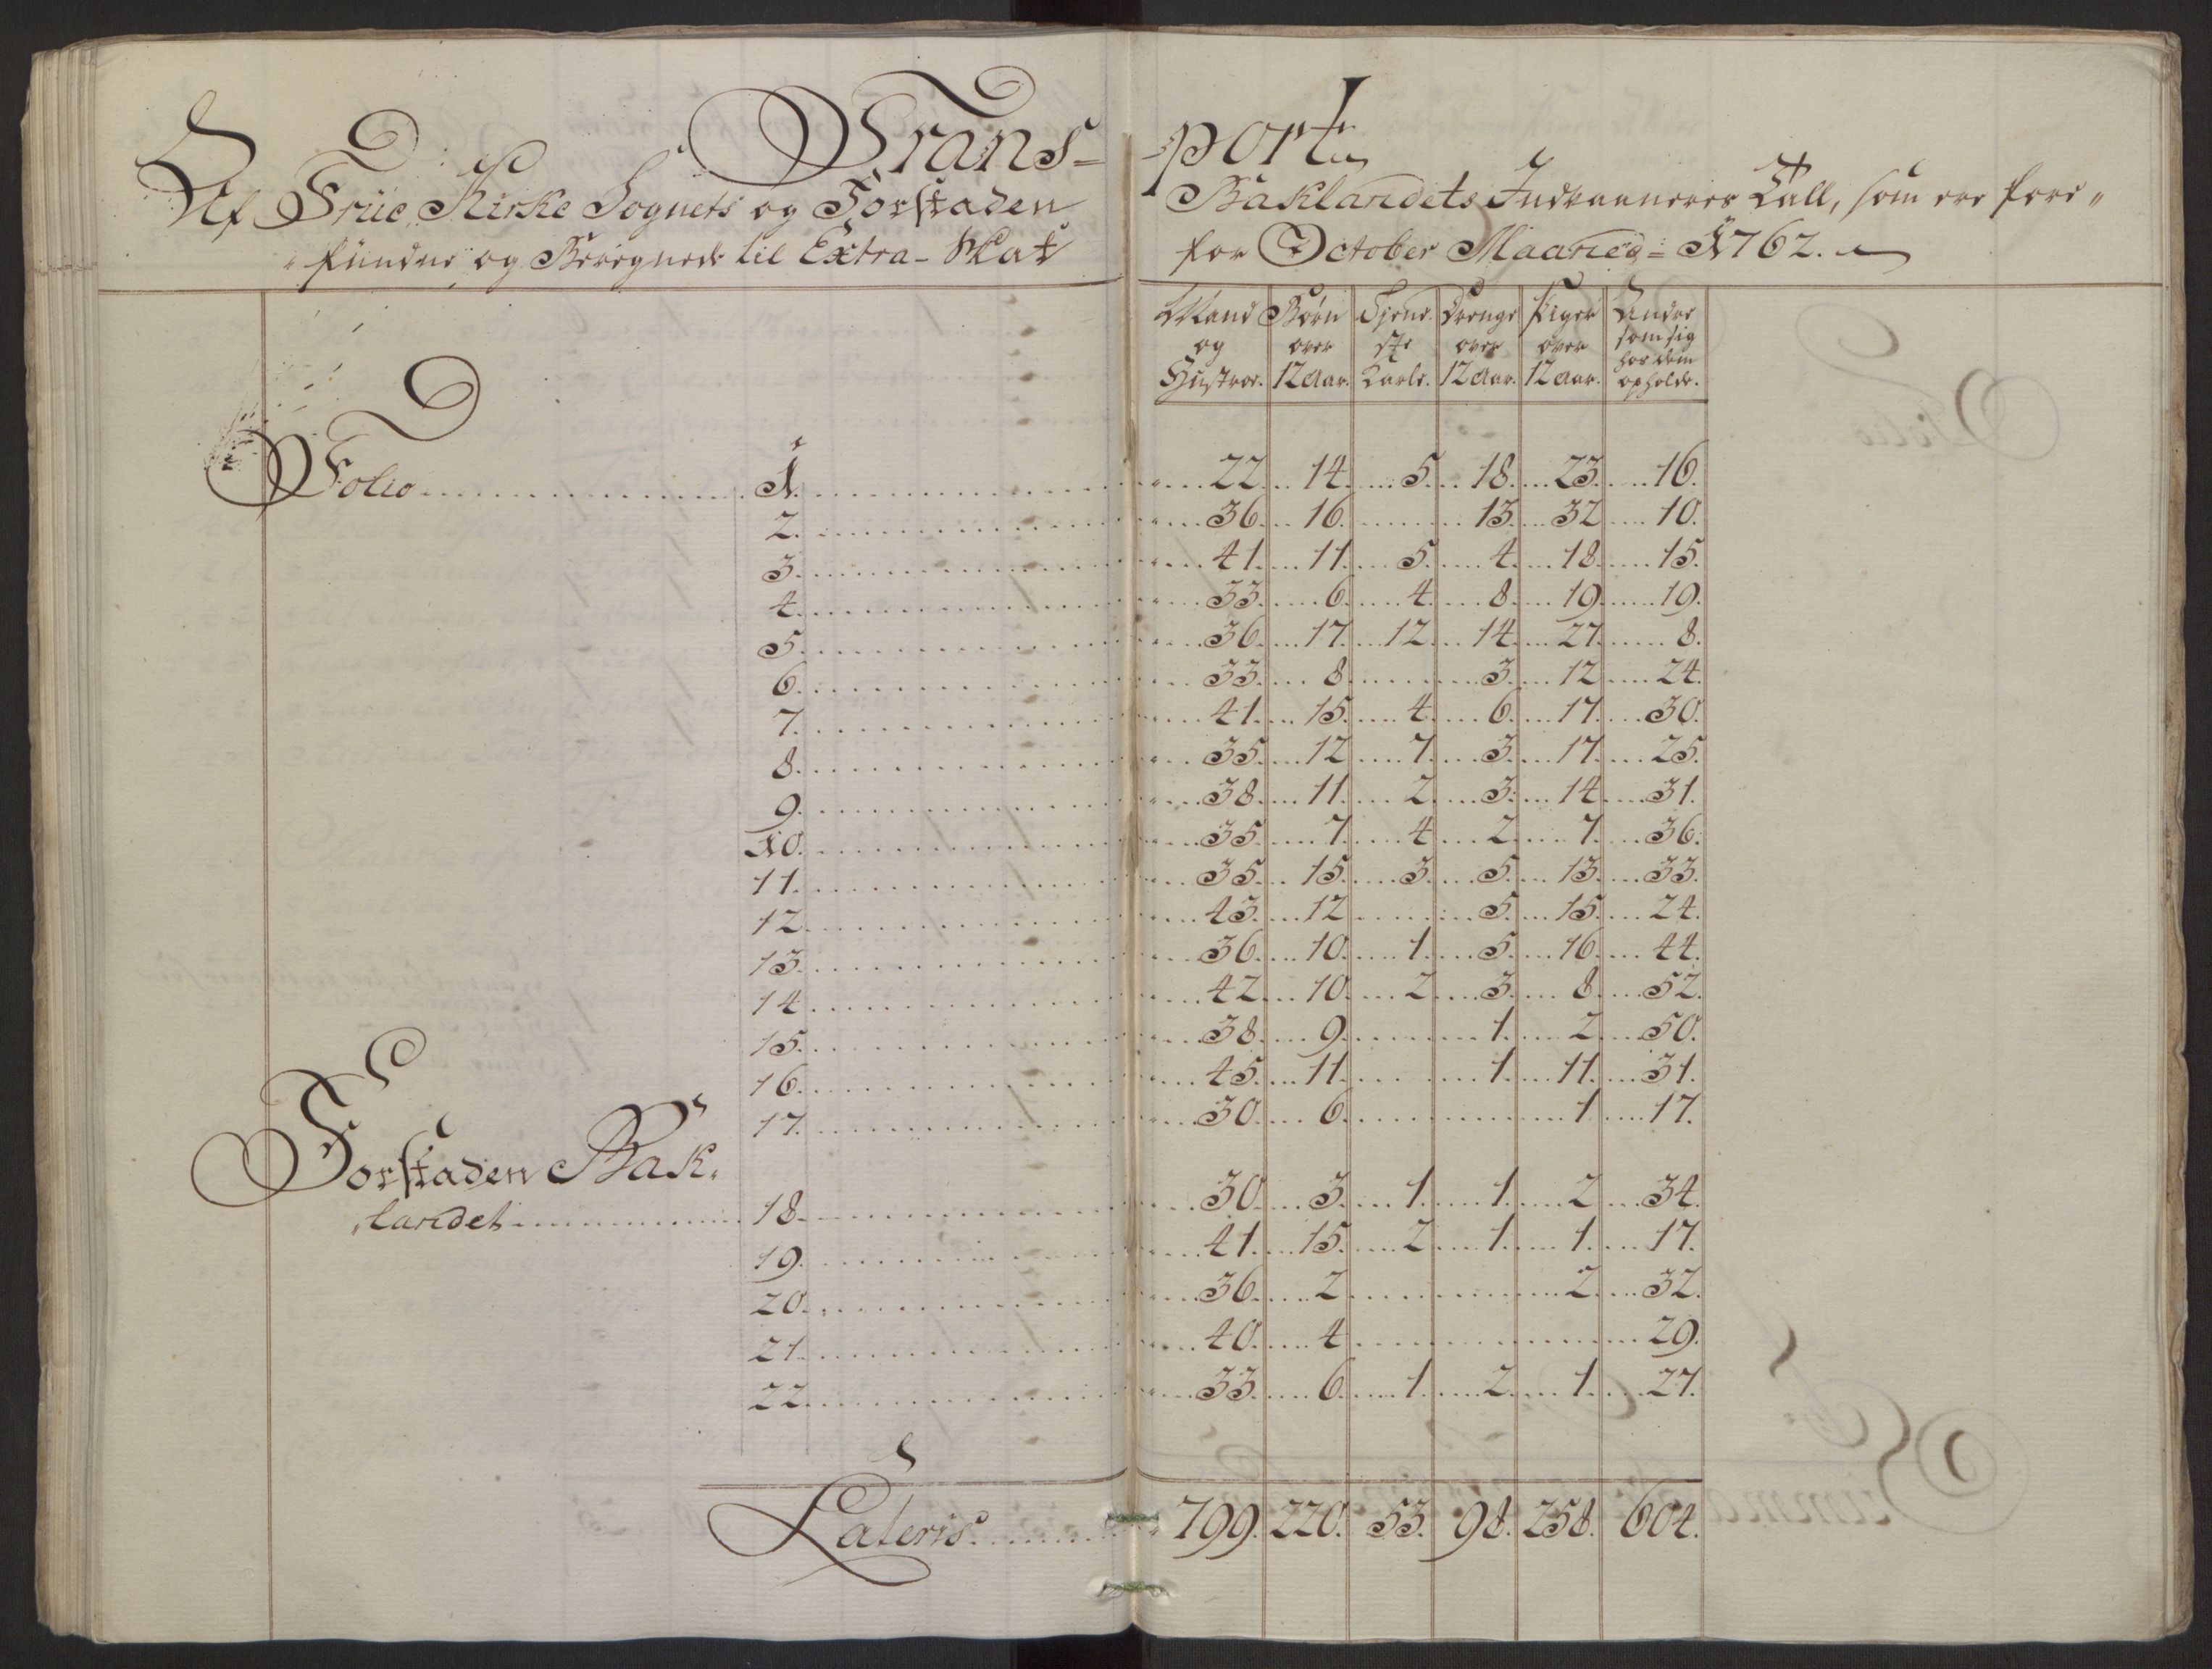 Trans- port
Af Früe Kirke Sognets og Forstaden Baklandets Indvaaneres Tall, som ere fore„
„fundne og Beregnede til Extra-Skat for October Maaned = 1762.
Mand og Hustroe. Børn over 12 Aar. Tjene- ste Karle. Drenge over 12 Aar. Piger over 12 Aar. Andre som sig hos dem opholde.
Folio 1. 22. 14. 5. 18. 23. 16.
2. 36. 16. 13. 32 10.
3. 41. 11. 5. 4. 18. 15.
4. 33. 6. 4. 8. 19. 19.
5. 36. 17. 12. 14. 27. 8.
6. 33. 8. 3. 12. 24.
7. 41. 15. 4. 6. 17. 30.
8. 35. 12 7. 3. 17. 25.
9. 38. 11. 2. 3. 14. 31.
10. 35. 7. 4. 2. 7. 36.
11. 35. 15. 3. 5. 13. 33.
12. 43. 12 5. 15. 24.
13. 36. 10. 1. 5. 16. 44.
14. 42. 10. 2. 3. 8. 52.
15. 38. 9. 1. 2. 50.
16. 45. 11. 1. 11. 31.
17. 30. 6. 1. 17.
Forstaden Bak-
„landet 18. 30. 3. 1. 1. 2. 34.
19. 41. 15. 2. 1. 1. 17.
20. 36. 2. 2. 32.
21. 40. 4. 29.
22. 33. 6. 1. 2. 1. 27.
Lateris 799. 220. 53. 98. 258. 604.